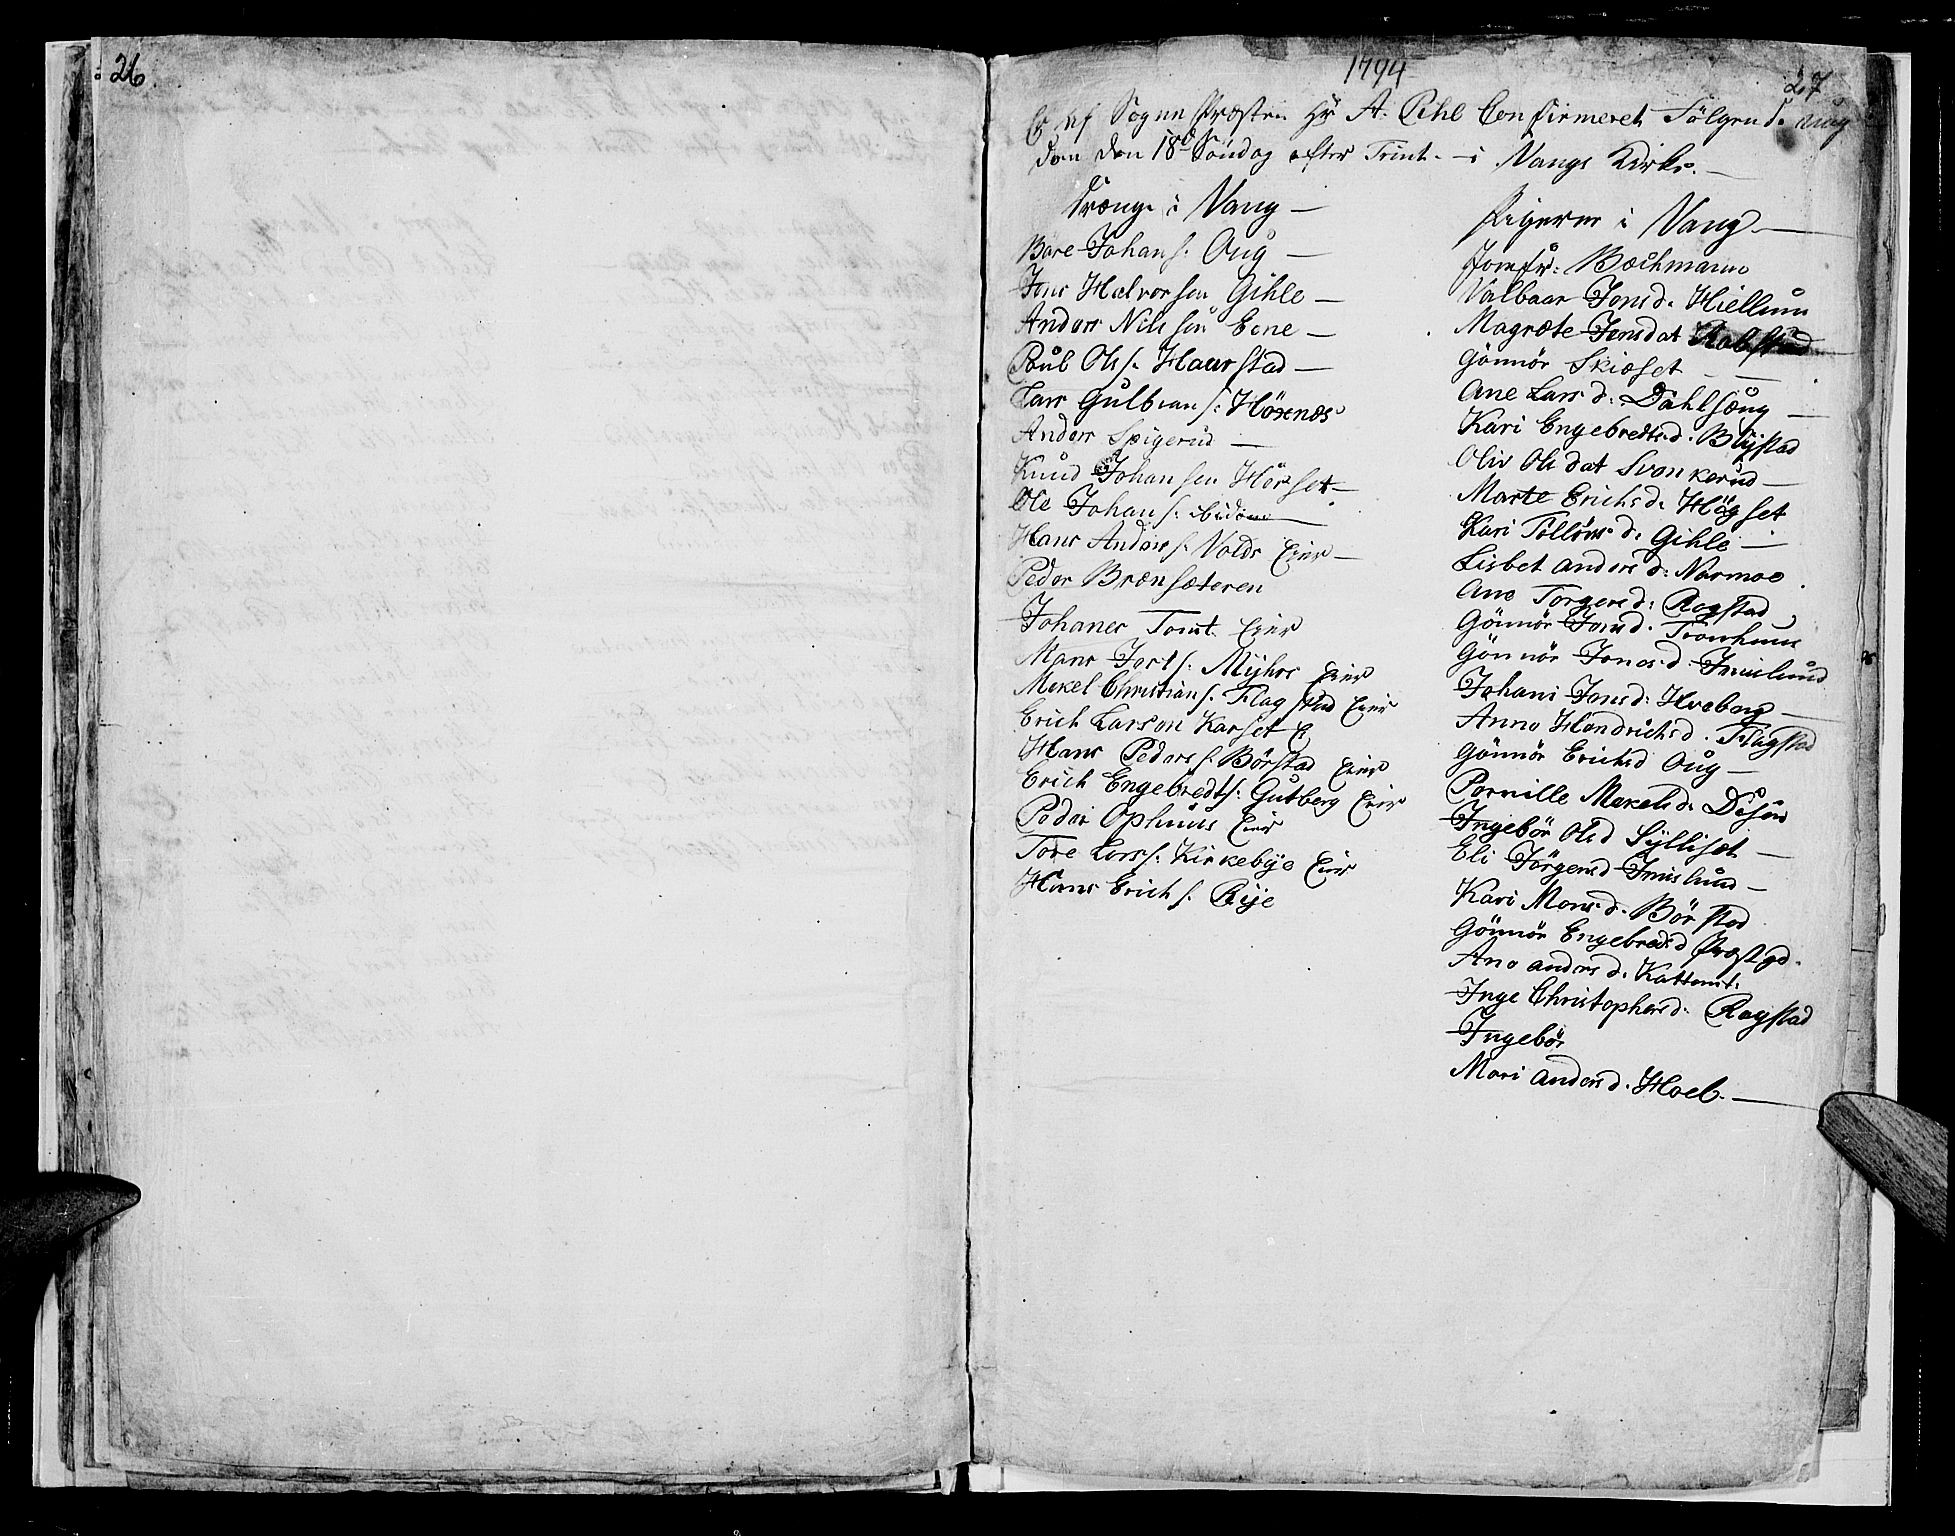 26
1794
27
Er af Sogne Præsten Hr A. Pihl Confirmeret Fölgende Ung
dom den 18de Söndag efter Trint. i Vangs Kirke.
Drænge i Vang
Bore Johans. Oug
Jens Halvorsen Gihle
Anders Nilssen Eene
Poul Ols. Haarstad
Lars Gulbrans. Hösnæs
Anders Spigerud
Knud Johansen Hörset
Ole Johans. ibidem
Hans Anders. Volds Eier
Peder Brænsæteren
Johanes Tomt. Eier
Mans Jorts. Myhrs Eier
Mekel Christians. Flagstad Eier
Erich Larsen Karset E
Hans Peders. Börstad Eier
Erich Engebredts. Gutberg Eier
Peder Ophuus Eier
Tore Lars. Kirkebye Eier
Hans Erichs. Rije
Pigerne i Vang
Jomfr: Bochmann
Valbaar Jonsd. Hiellum
Magræte Jensdat
Gönnör Skioset
Ane Larsd: Dahlseng
Kari Engebredtsd. Bÿstad
Oliv Olsdat Svenkerud
Marte Erichsd. Högset
Kari Tollevsd. Gihle
Lisbet Andersd: Narmoe
Ane Torgersd: Rogstad
Gönnör Jonsd. Tronhuus
Gönnör Jonesd. Imislund
Johani Jonsd: Hveberg
Anne Hendrichsd. Flagstad
Gönnör Erichsd Oug
Pernille Mekelsd: Disen
Ingebör Olsd Sylliset
Eli Jörgensd Imislund
Kari Monsd. Börstad
Gönnör Engebredsd Præstgd.
Ane Andersd. Kattomt.
Inge Christophersd. Rogstad
Ingebör
Mari Andersd. Hoel.